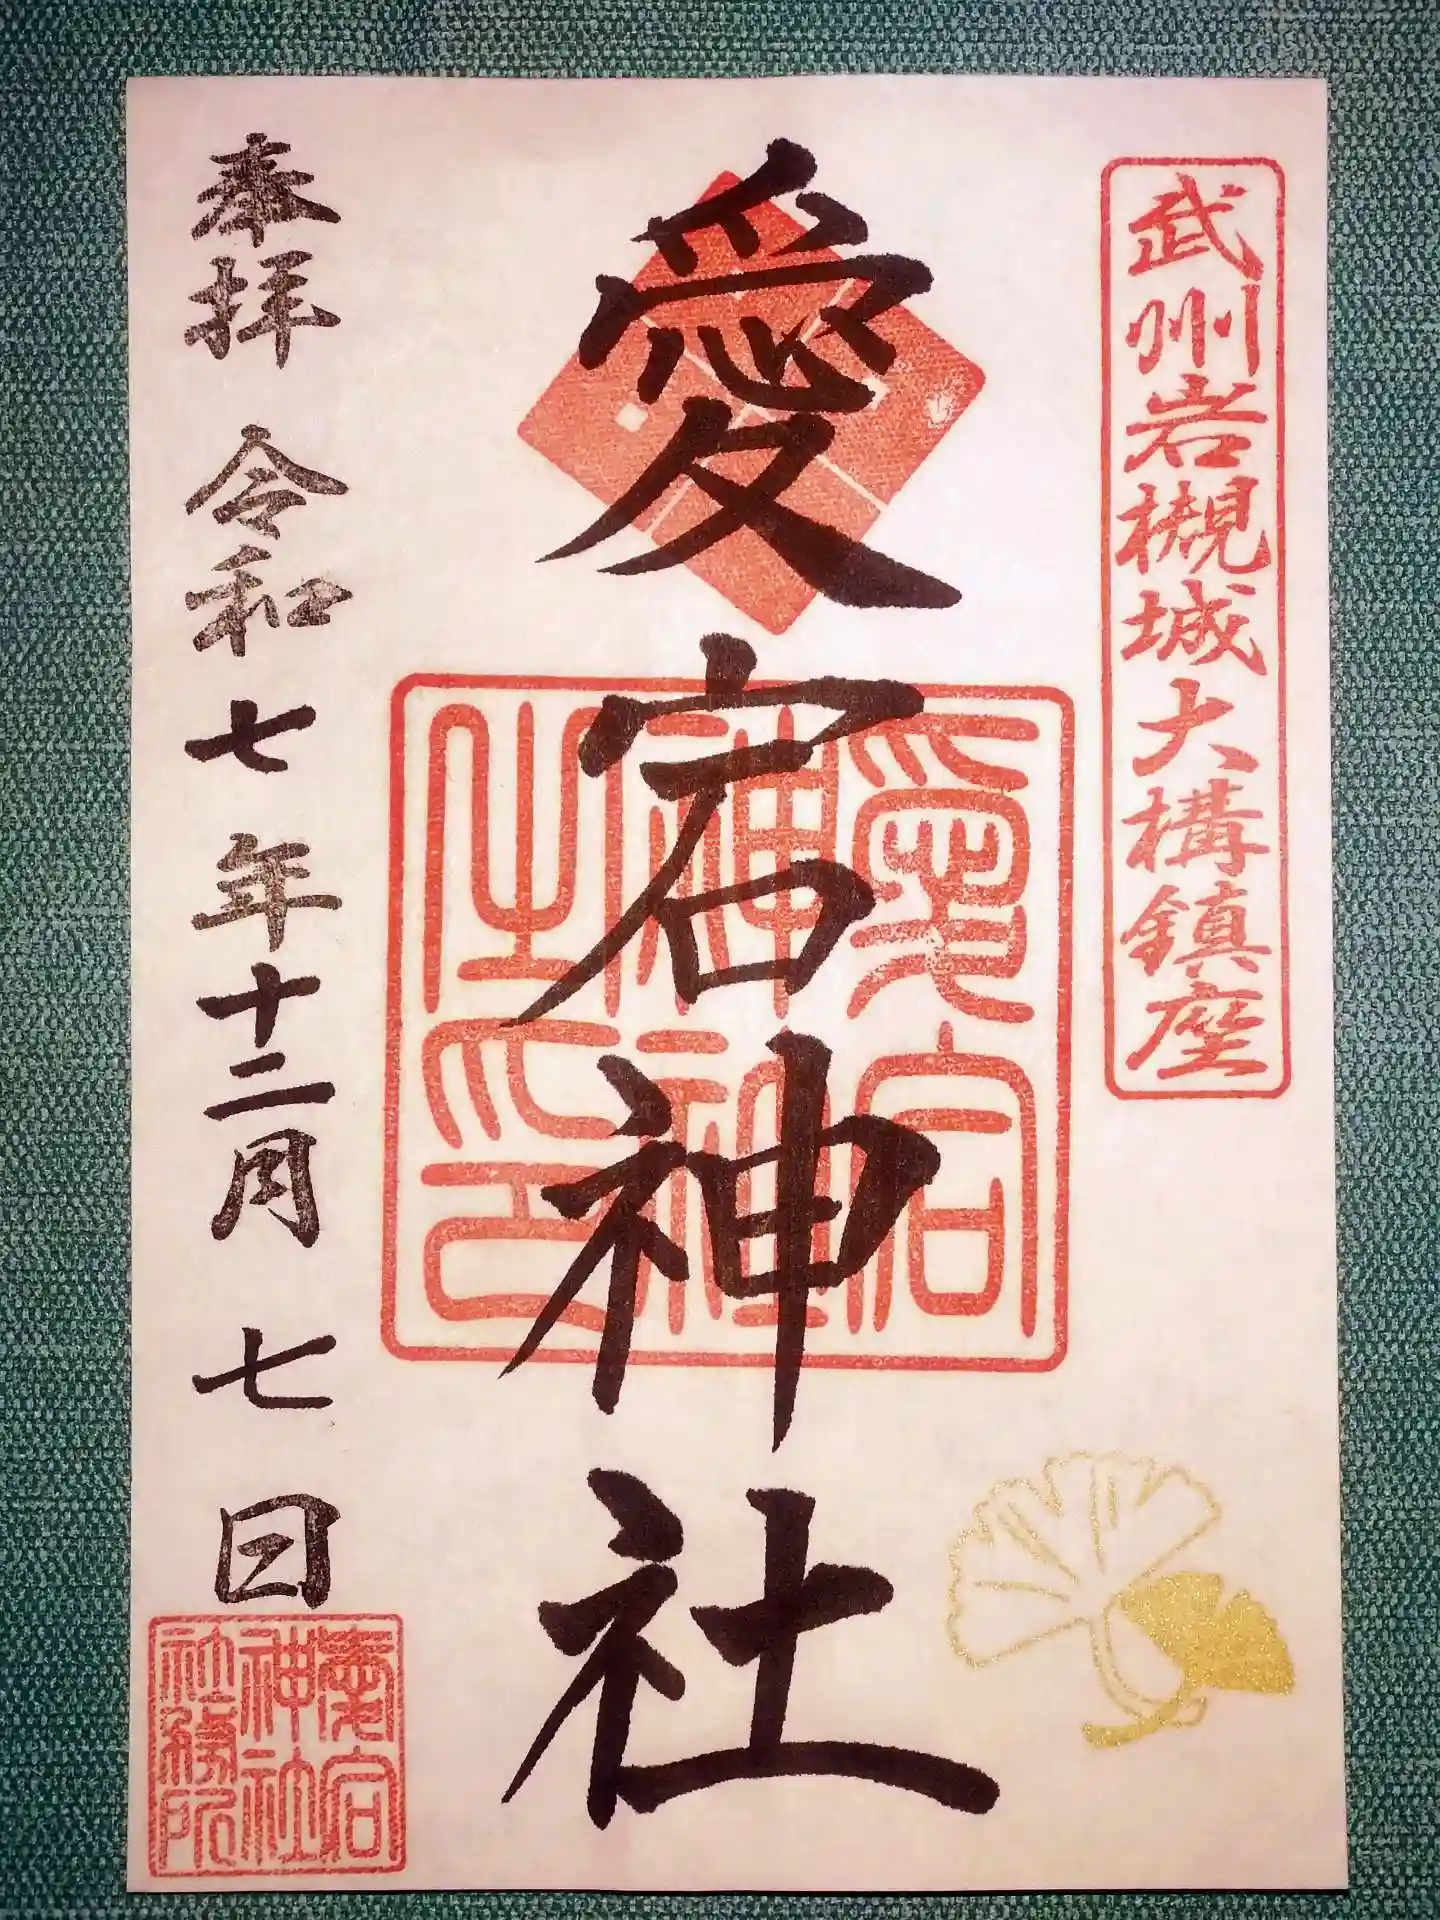 武州岩槻城大構鎮座
愛宕神社
愛宕
神社
之印
奉拝 令和七年十二月七日
愛宕
神社
社務所